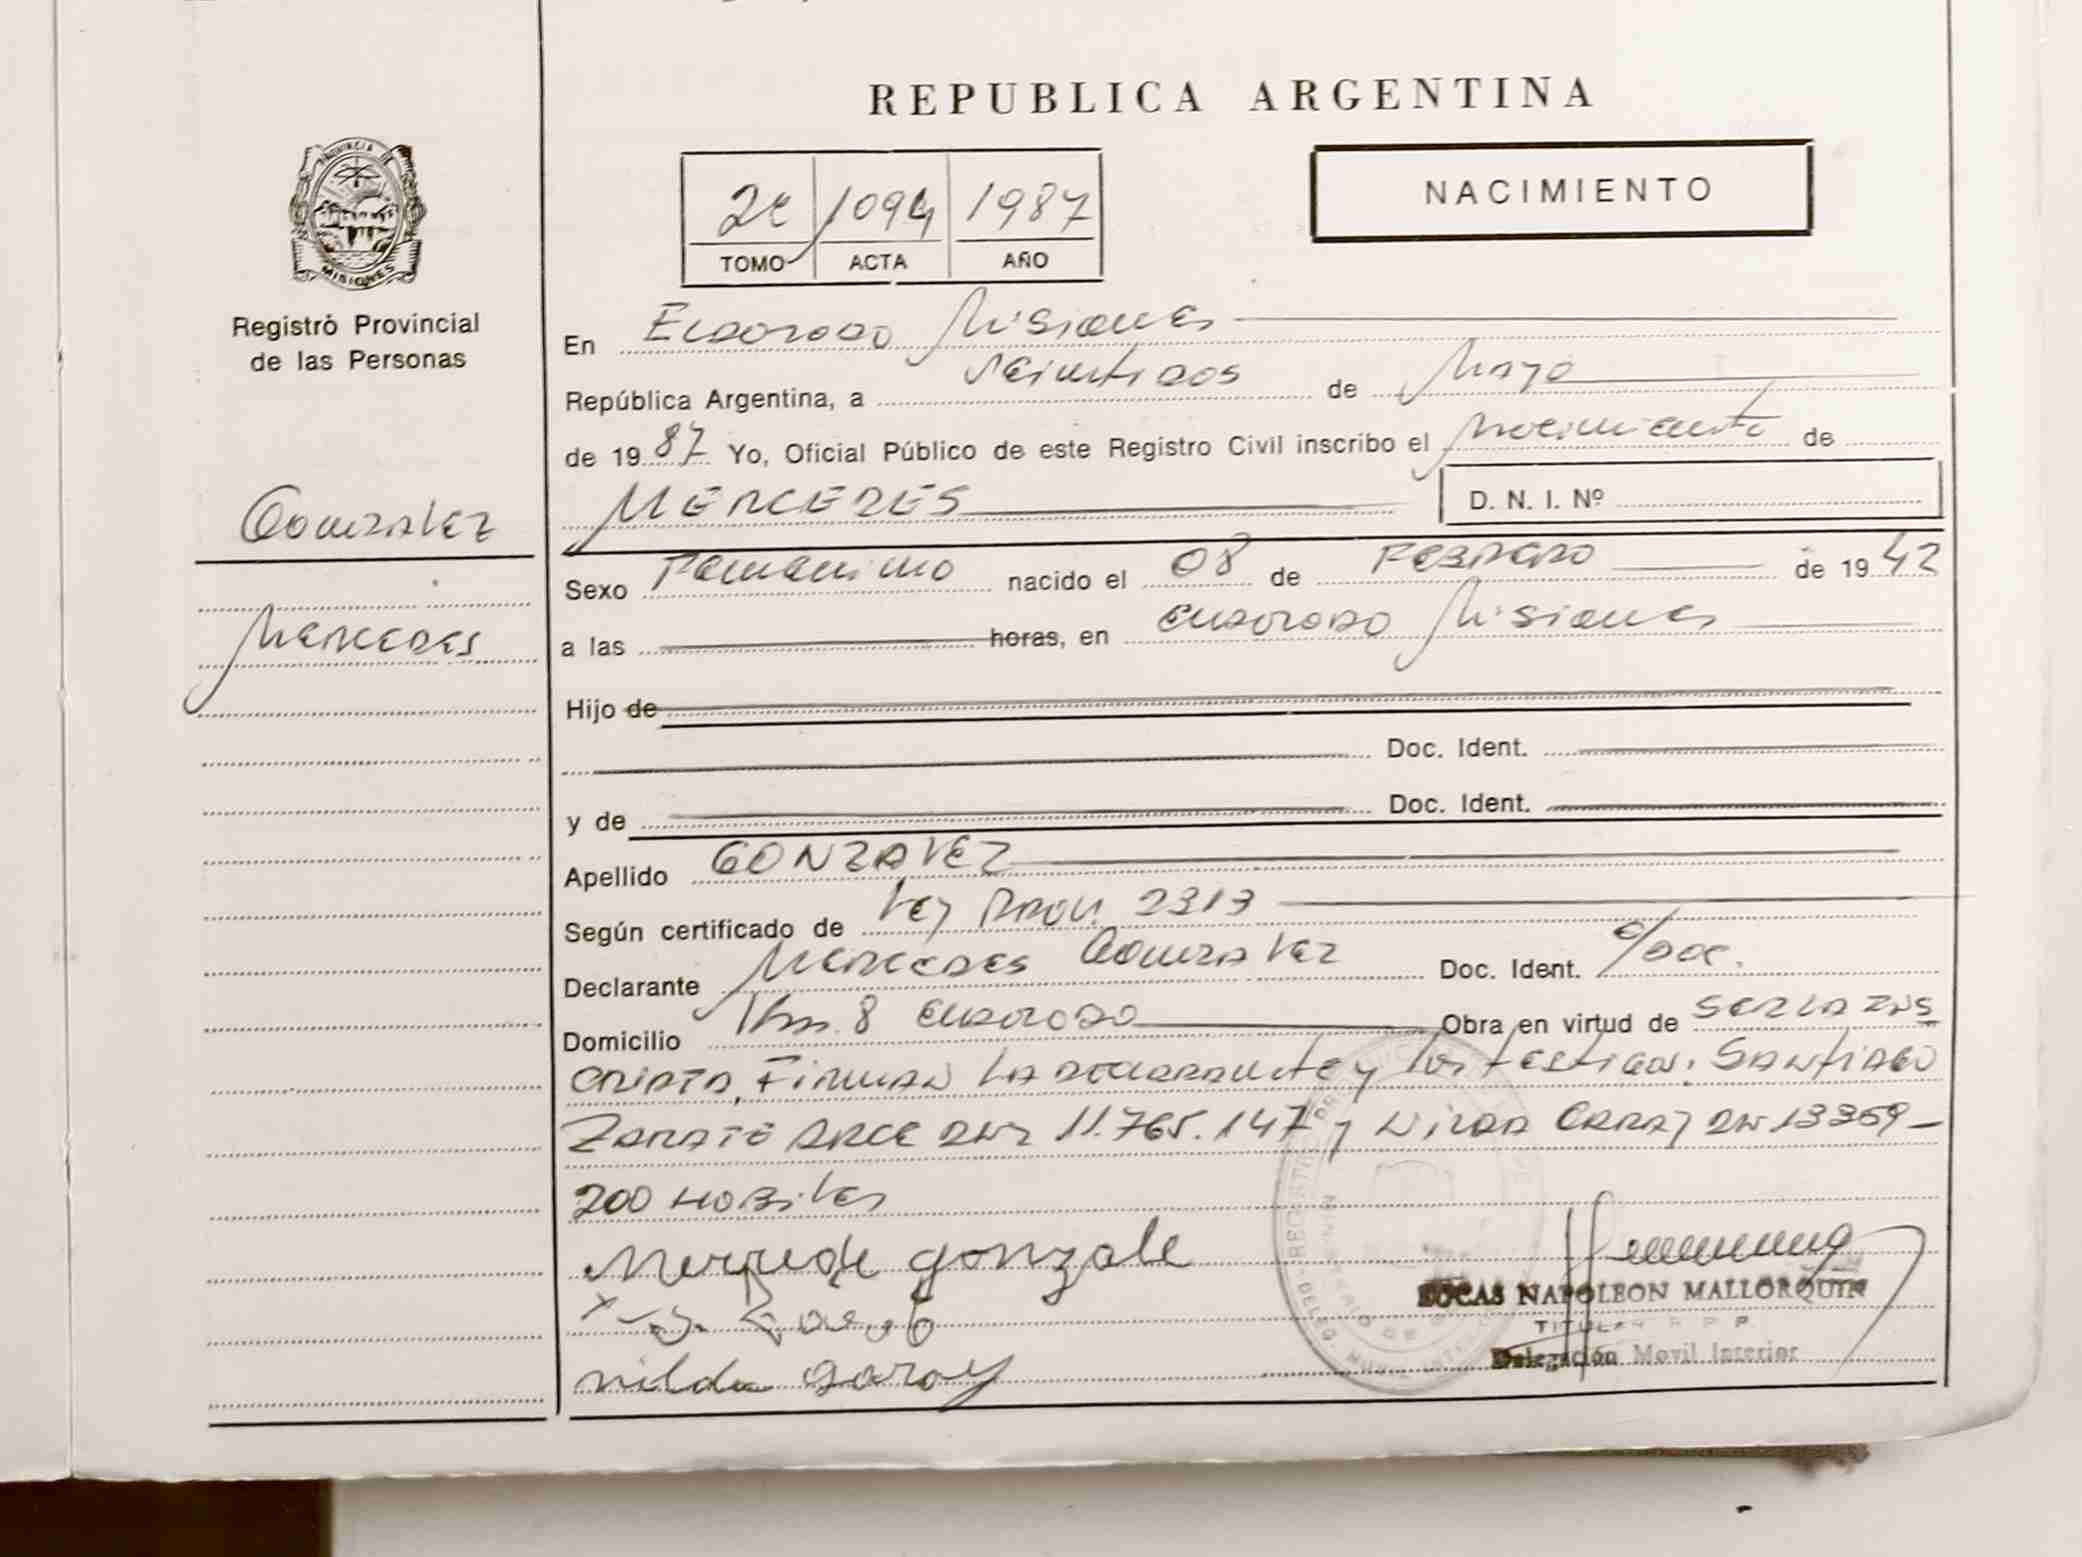 REPUBLICA ARGENTINA
PROVINCIA DE
MISIONES
Registro Provincial
de las Personas
1094 1987
TOMO ACTA AÑO
NACIMIENTO
En Eldorado Misiones
República Argentina, a veintidos de Mayo
de 1987 Yo, Oficial Público de este Registro Civil inscribo el Nacimiento de
MERCEDES
D. N. I. Nº
Gonzalez
Mercedes
Sexo Femenino nacido el 08 de Febrero de 1942
a las horas, en Eldorado Misiones
Hijo de
Doc. Ident.
y de Doc. Ident.
Apellido GONZALEZ
Según certificado de Ley Prov. 2313
Declarante Mercedes Gonzalez Doc. Ident. s/Doc.
Domicilio Km. 8 Eldorado Obra en virtud de SER LA INS
CRIPTA, Firman la declarante y los testigos: Santiago
Zarate Arce DNI 11.765.147 y Nilda Garay DNI 13359-
200 Habiles
Merrede gonzale
nilda garay
LUCAS NAPOLEON MALLORQUIN
TITULAR R P P
Delegación Movil Interior